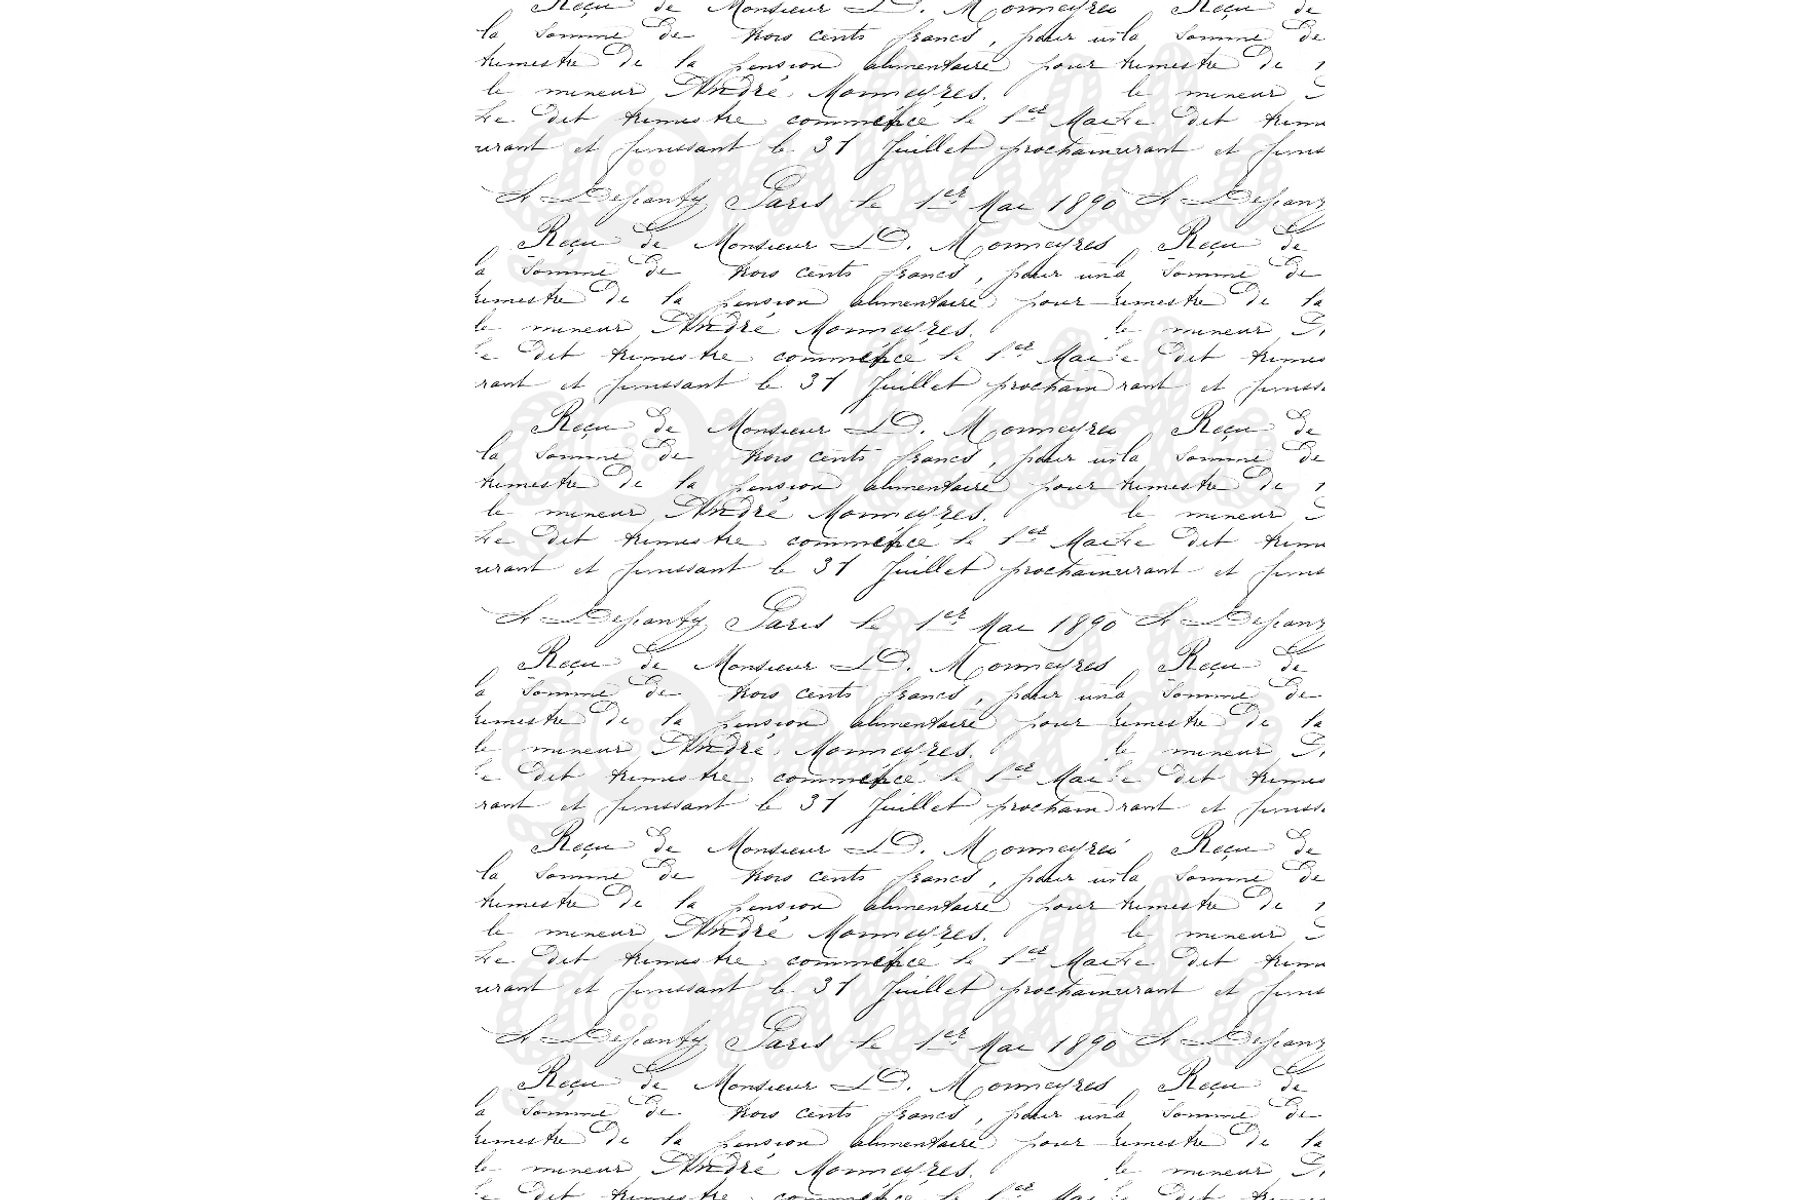 Reçu de Monsieur D. Monneyres Reçu de
la Somme de trois cents francs, pour un la Somme de
trimestre de la pension alimentaire pour trimestre de
le mineur André Monneyres. le mineur
Le dit trimestre commence le 1er Mai Le dit trim
urant et finissant le 31 Juillet prochain urant et finis
Paris le 1er Mai 1890
Reçu de Monsieur D. Monneyres Reçu de
la Somme de trois cents francs, pour un la Somme de
trimestre de la pension alimentaire pour trimestre de la
le mineur André Monneyres. le mineur
Le dit trimestre commence le 1er Mai Le dit trimes
rant et finissant le 31 Juillet prochain rant et finiss
Reçu de Monsieur D. Monneyres Reçu de
la Somme de trois cents francs, pour un la Somme de
trimestre de la pension alimentaire pour trimestre de
le mineur André Monneyres. le mineur
Le dit trimestre commence le 1er Mai Le dit trim
urant et finissant le 31 Juillet prochain urant et finis
Paris le 1er Mai 1890
Reçu de Monsieur D. Monneyres Reçu de
la Somme de trois cents francs, pour un la Somme de
trimestre de la pension alimentaire pour trimestre de la
le mineur André Monneyres. le mineur
Le dit trimestre commence le 1er Mai Le dit trimes
rant et finissant le 31 Juillet prochain rant et finiss
Reçu de Monsieur D. Monneyres Reçu de
la Somme de trois cents francs, pour un la Somme de
trimestre de la pension alimentaire pour trimestre de
le mineur André Monneyres. le mineur
Le dit trimestre commence le 1er Mai Le dit trim
urant et finissant le 31 Juillet prochain urant et finis
Paris le 1er Mai 1890
Reçu de Monsieur D. Monneyres Reçu de
la Somme de trois cents francs, pour un la Somme de
trimestre de la pension alimentaire pour trimestre de la
le mineur André Monneyres. le mineur
Le dit trimestre commence le 1er Mai Le dit trimes